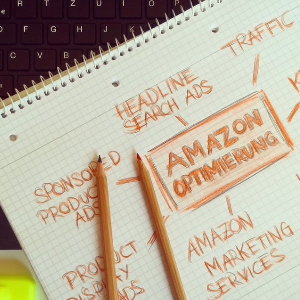 TRAFFIC
HEADLINE
SEARCH ADS
AMAZON
OPTIMIERUNG
SPONSORED
PRODUCT
ADS
AMAZON
MARKETING
SERVICES
PRODUCT
DISPLAY
ADS